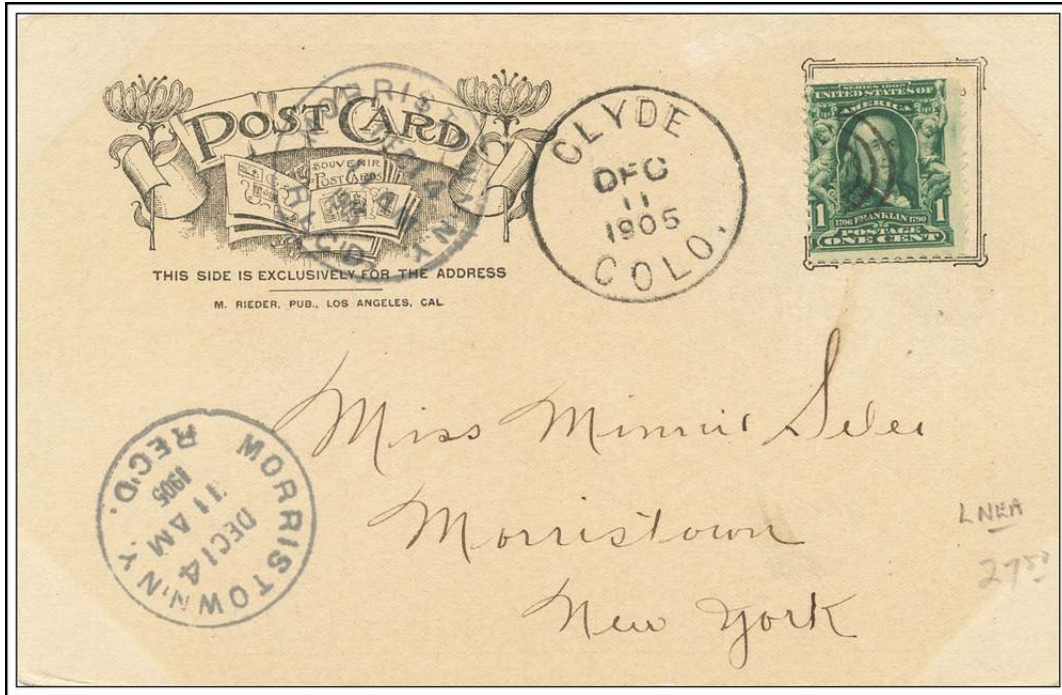 POST CARD
SOUVENIR
POST CARDS
THIS SIDE IS EXCLUSIVELY FOR THE ADDRESS
M. RIEDER, PUB., LOS ANGELES, CAL.
CLYDE
DEC
11
1905
COLO.
SERIES 1902
UNITED STATES OF
AMERICA
1 1
1706 FRANKLIN 1790
POSTAGE
ONE CENT
Miss Minnie
Morristown
New York
MORRISTOWN, N.Y.
DEC 14
11 AM
1905
REC'D.